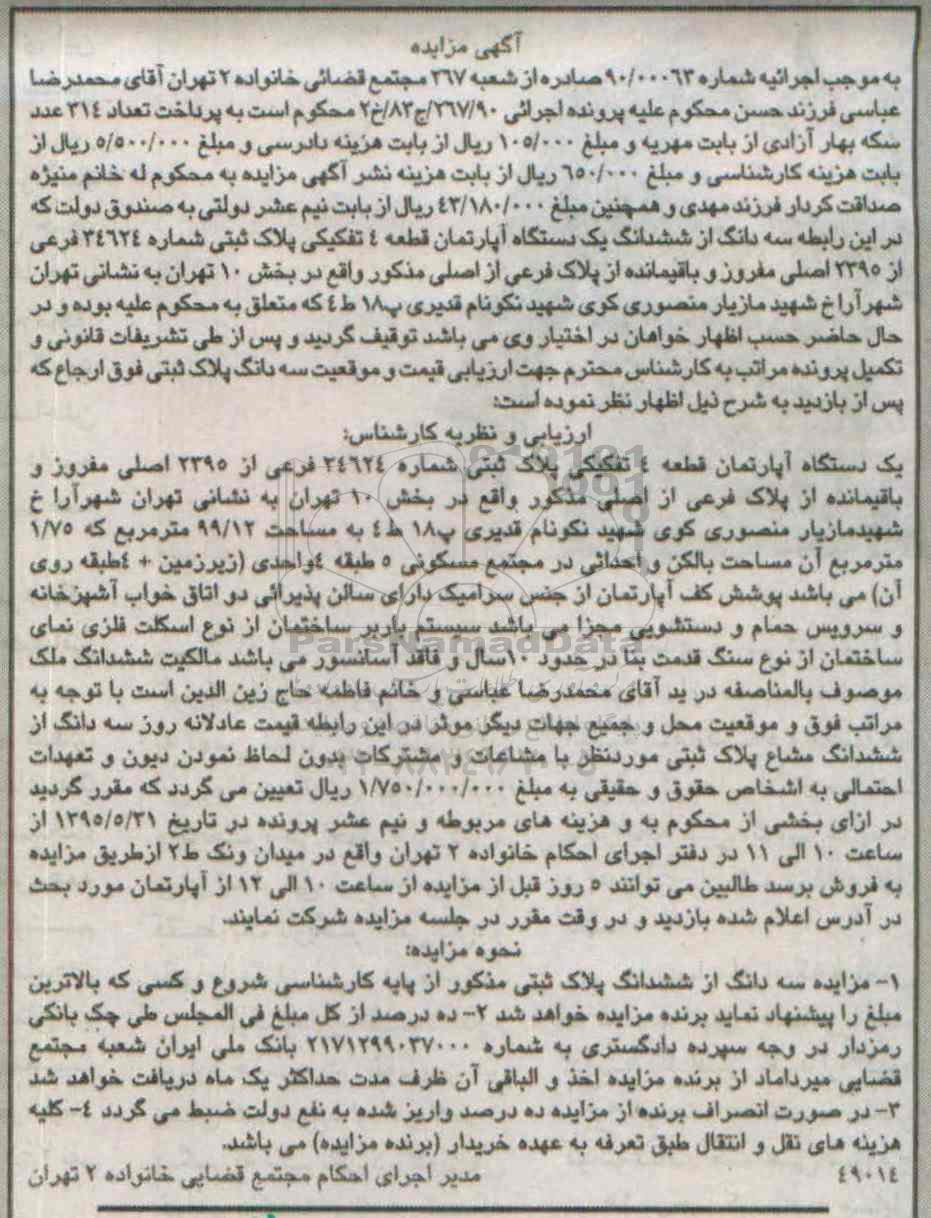 آگهی مزایده
به موجب اجرائیه شماره ۹۰/۰۰۰۶۳ صادره از شعبه ۲۶۷ مجتمع قضائی خانواده ۲ تهران آقای محمدرضا
عباسی فرزند حسن محکوم علیه پرونده اجرائی ۲۶۷/۹۰/ج۸۳/خ۲ محکوم است به پرداخت تعداد ۳۱٤ عدد
سکه بهار آزادی از بابت مهریه و مبلغ ۱۰۵/۰۰۰ ریال از بابت هزینه دادرسی و مبلغ ۵/۵۰۰/۰۰۰ ریال از
بابت هزینه کارشناسی و مبلغ ٦۵۰/۰۰۰ ریال از بابت هزینه نشر آگهی مزایده به محکوم له خانم منیژه
صداقت کردار فرزند مهدی و همچنین مبلغ ٤۳/۱۸۰/۰۰۰ ریال از بابت نیم عشر دولتی به صندوق دولت که
در این رابطه سه دانگ از ششدانگ یک دستگاه آپارتمان قطعه ٤ تفکیکی پلاک ثبتی شماره ۳٤٦۲٤ فرعی
از ۲۳۹۵ اصلی مفروز و باقیمانده از پلاک فرعی از اصلی مذکور واقع در بخش ۱۰ تهران به نشانی تهران
شهرآرا خ شهید مازیار منصوری کوی شهید نکونام قدیری پ۱۸ ط٤ که متعلق به محکوم علیه بوده و در
حال حاضر حسب اظهار خواهان در اختیار وی می باشد توقیف گردید و پس از طی تشریفات قانونی و
تکمیل پرونده مراتب به کارشناس محترم جهت ارزیابی قیمت و موقعیت سه دانگ پلاک ثبتی فوق ارجاع که
پس از بازدید به شرح ذیل اظهار نظر نموده است:
ارزیابی و نظریه کارشناس:
یک دستگاه آپارتمان قطعه ٤ تفکیکی پلاک ثبتی شماره ۳٤٦۲٤ فرعی از ۲۳۹۵ اصلی مفروز و
باقیمانده از پلاک فرعی از اصلی مذکور واقع در بخش ۱۰ تهران به نشانی تهران شهرآرا خ
شهیدمازیار منصوری کوی شهید نکونام قدیری پ۱۸ ط٤ به مساحت ۹۹/۱۲ مترمربع که ۱/۷۵
مترمربع آن مساحت بالکن و احداثی در مجتمع مسکونی ۵ طبقه ٤واحدی (زیرزمین + ٤طبقه روی
آن) می باشد پوشش کف آپارتمان از جنس سرامیک دارای سالن پذیرائی دو اتاق خواب آشپزخانه
و سرویس حمام و دستشویی مجزا می باشد سیستم باربر ساختمان از نوع اسکلت فلزی نمای
ساختمان از نوع سنگ قدمت بنا در حدود ۱۰سال و فاقد آسانسور می باشد مالکیت ششدانگ ملک
موصوف بالمناصفه در ید آقای محمدرضا عباسی و خانم فاطمه حاج زین الدین است با توجه به
مراتب فوق و موقعیت محل و جمیع جهات دیگر موثر در این رابطه قیمت عادلانه روز سه دانگ از
ششدانگ مشاع پلاک ثبتی موردنظر با مشاعات و مشترکات بدون لحاظ نمودن دیون و تعهدات
احتمالی به اشخاص حقوق و حقیقی به مبلغ ۱/۷۵۰/۰۰۰/۰۰۰ ریال تعیین می گردد که مقرر گردید
در ازای بخشی از محکوم به و هزینه های مربوطه و نیم عشر پرونده در تاریخ ۱۳۹۵/۵/۳۱ از
ساعت ۱۰ الی ۱۱ در دفتر اجرای احکام خانواده ۲ تهران واقع در میدان ونک ط۲ ازطریق مزایده
به فروش برسد طالبین می توانند ۵ روز قبل از مزایده از ساعت ۱۰ الی ۱۲ از آپارتمان مورد بحث
در آدرس اعلام شده بازدید و در وقت مقرر در جلسه مزایده شرکت نمایند.
نحوه مزایده:
۱- مزایده سه دانگ از ششدانگ پلاک ثبتی مذکور از پایه کارشناسی شروع و کسی که بالاترین
مبلغ را پیشنهاد نماید برنده مزایده خواهد شد ۲- ده درصد از کل مبلغ فی المجلس طی چک بانکی
رمزدار در وجه سپرده دادگستری به شماره ۲۱۷۱۲۹۹۰۳۷۰۰۰ بانک ملی ایران شعبه مجتمع
قضایی میرداماد از برنده مزایده اخذ و الباقی آن ظرف مدت حداکثر یک ماه دریافت خواهد شد
۳- در صورت انصراف برنده از مزایده ده درصد واریز شده به نفع دولت ضبط می گردد ٤- کلیه
هزینه های نقل و انتقال طبق تعرفه به عهده خریدار (برنده مزایده) می باشد.
٤۹۰۱٤ مدیر اجرای احکام مجتمع قضایی خانواده ۲ تهران
ParsNamadData